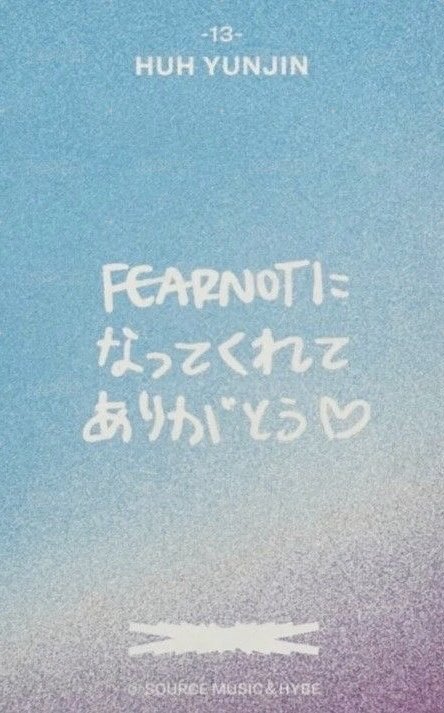 -13-
HUH YUNJIN
FEARNOTに
なってくれて
ありがとう♡
© SOURCE MUSIC & HYBE